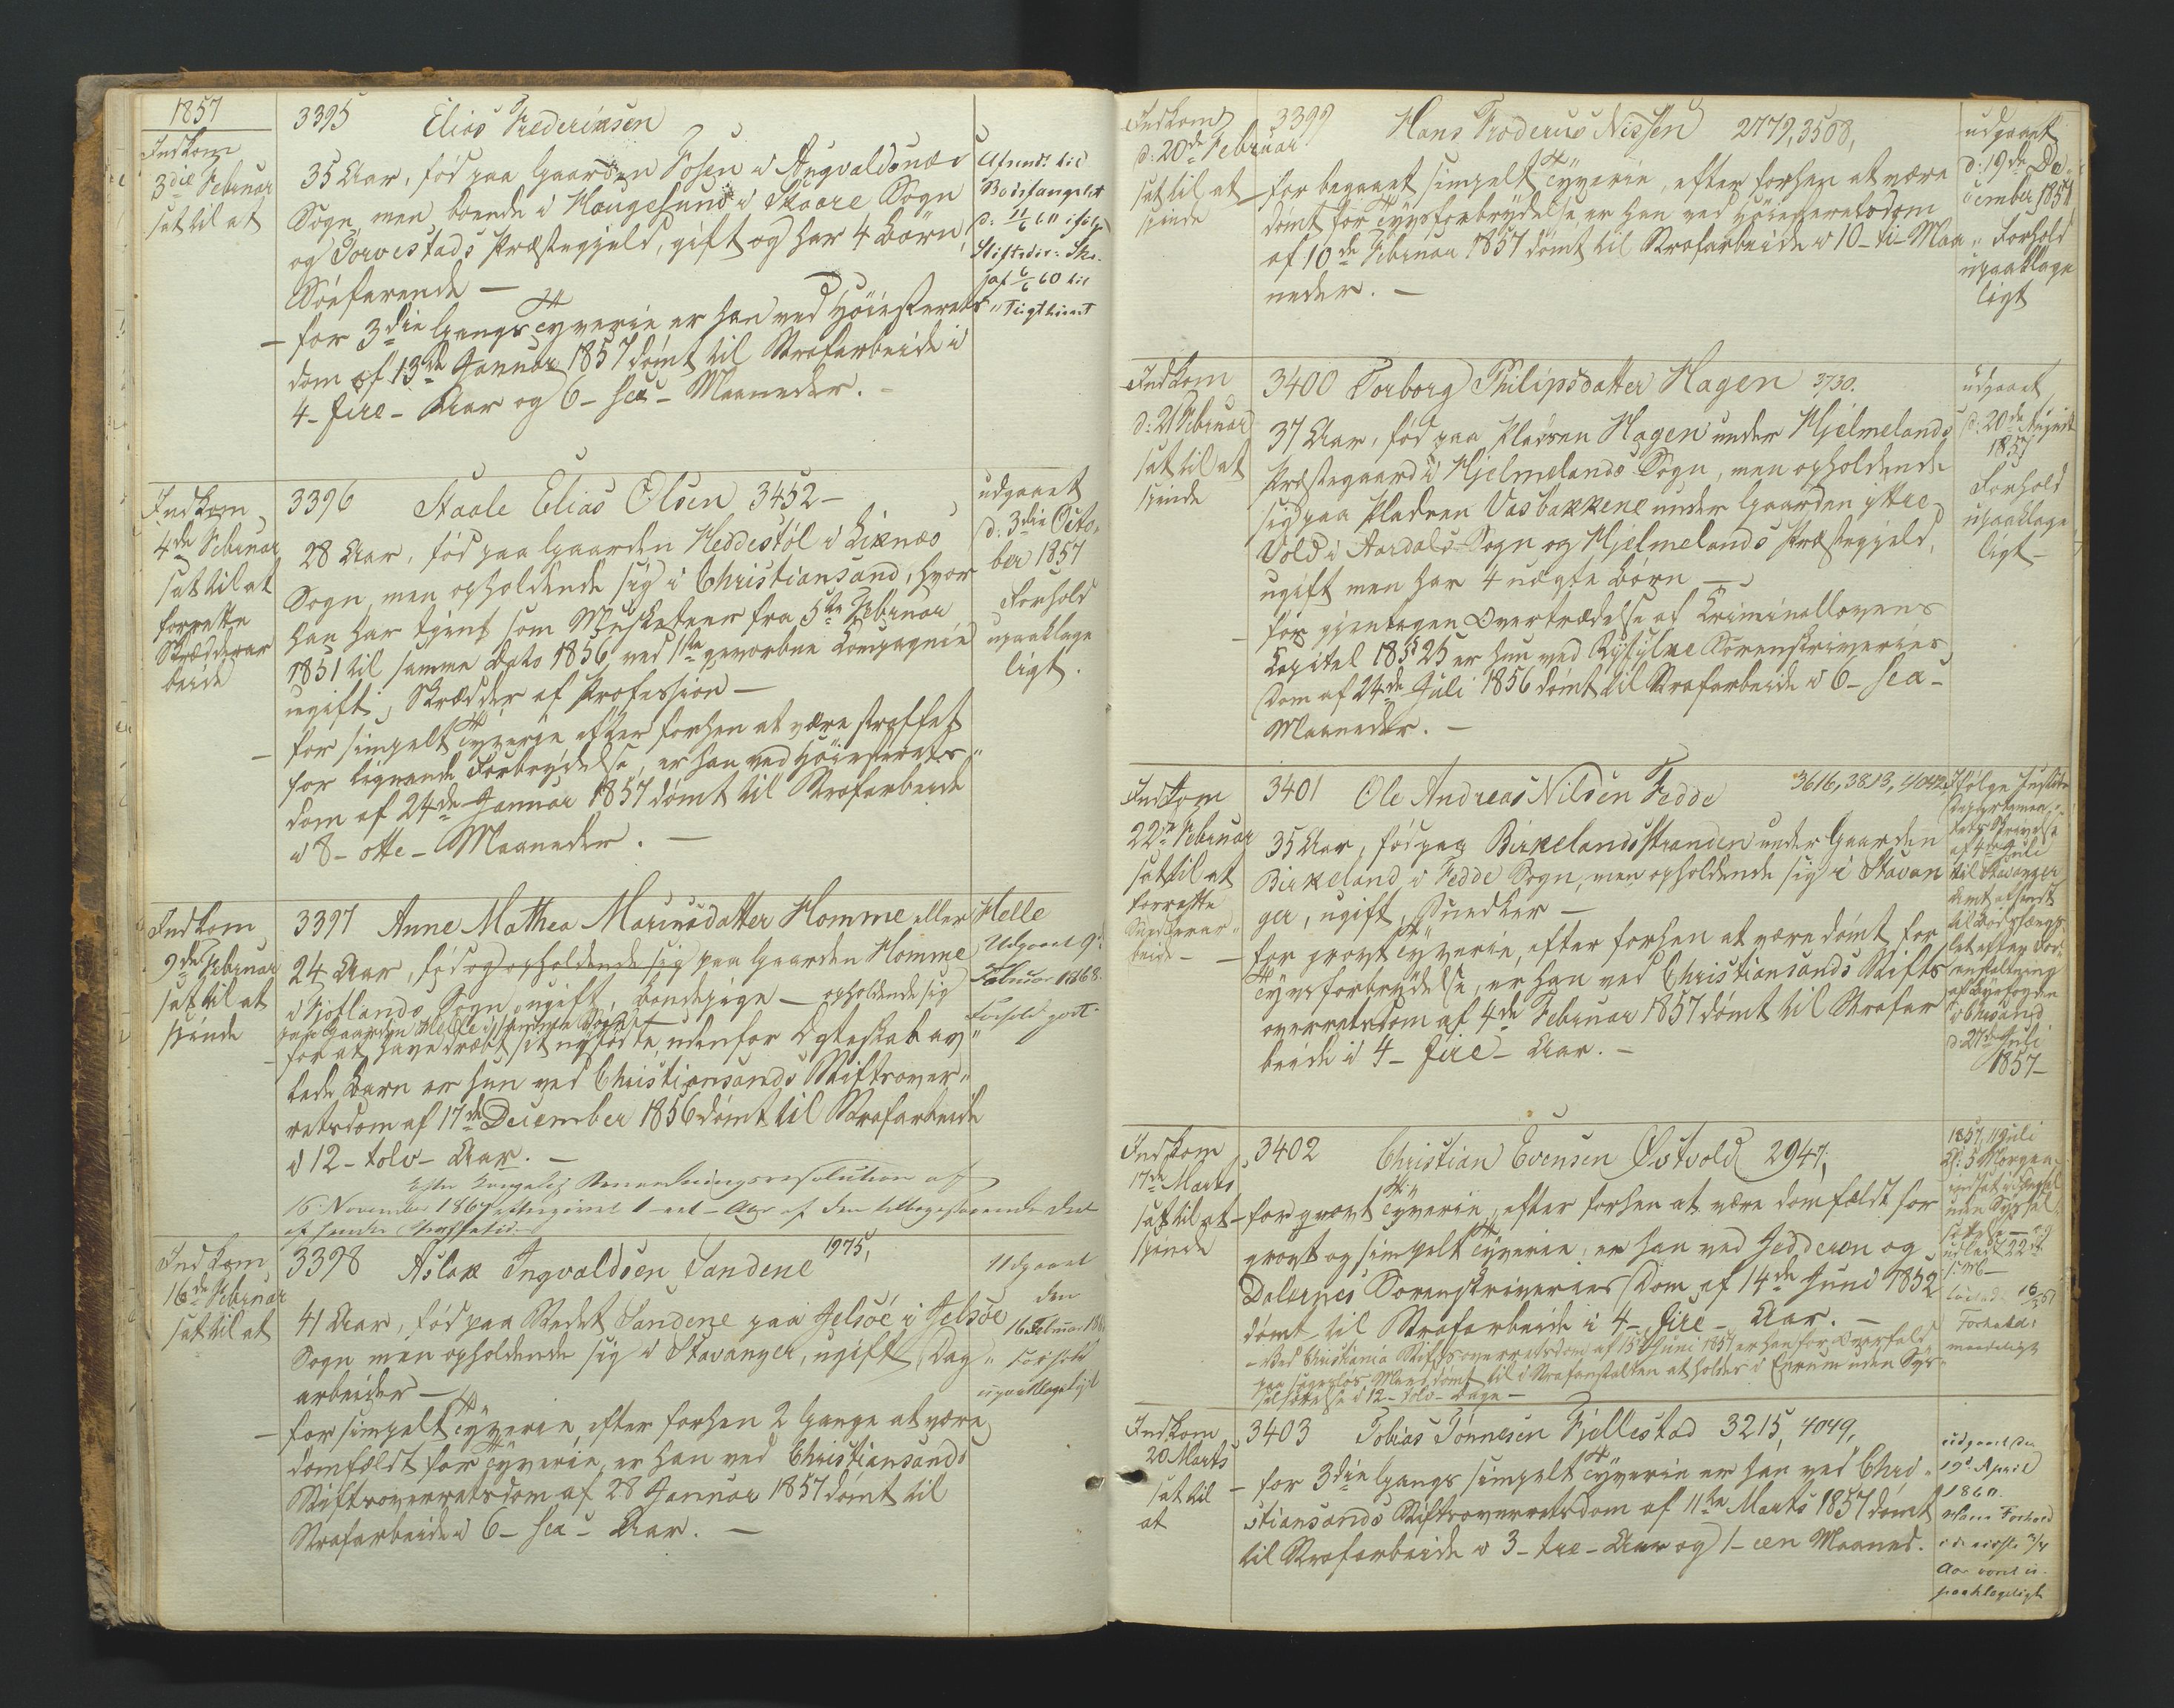 1857
Indkom
3die Februar
sat til at
3395 Elias Frederiksen
35 Aar, fød paa Gaarden Fosen i Augvaldsnæs
Sogn men boende i Haugesund i Skaare Sogn
og Torvestads Præstegjeld, gift og har 4 Børn,
Søefarende —
— for 3die Gangs Tyverie er han ved Høiesterets"
dom af 13de Januar 1857 dømt til Strafarbeide i
4 - fire - Aar og 6 - sex - Maaneder. —
Afsendt til
Bodsfængslet
d: 11/6 60 ifølge
Stiftsdir: Skr.
af 6/6 60 til
Tugthuset
Indkom
4de Februar
sat til at
forrette
Skrædderar
beide
3396 Staale Elias Olsen 3452 —
28 Aar, fød paa Gaarden Heddestøl i Liknæs
Sogn men opholdende sig i Christiansand, hvor
han har tjent som Musketeer fra 5te Februar
1851 til samme Dato 1856 ved 1ste gevorbne Compagnie
ugift, Skrædder af Profession —
— for simpelt Tyverie efter forhen at være straffet
for lignende Forbrydelse, er han ved Høiesterets"
dom af 24de Januar 1857 dømt til Strafarbeide
i 8 - otte - Maaneder. —
udgaaet
d: 3die Octo-
ber 1857
Forhold
upaaklage
ligt.
Indkom
9de Februar
sat til at
spinde
3397 Anne Mathea Marinusdatter Homme eller Helle
24 Aar, fød og opholdende sig paa Gaarden Homme
i Fjotlands Sogn, ugift, Bondepige — opholdende sig
paa Gaarden Helle i samme Sogn
— for at have dræbt sit nyfødte, udenfor Ægteskab av"
lede Barn er hun ved Christiansands Stiftsover"
retsdom af 17de December 1856 dømt til Strafarbeide
i 12 - tolv - Aar. —
Efter Kongelig Benaadningsresolution af
16 November 1867 eftergivet 1 - eet - Aar af den tilbagestaaende Deel
af hendes Straffetid.
Udgaaet 9de
Februar 1868.
Forhold godt.
Indkom
16de Februar
sat til at
3398 Aslak Ingvaldsen Sandene 1975,
41 Aar, fød paa Stedet Sandene paa Jelsøe i Jelsøe
Sogn men opholdende sig i Stavanger, ugift, Dag"
arbeider —
— for simpelt Tyverie, efter forhen 2 Gange at være
domfældt for Tyverie, er han ved Christiansands
Stiftsoverretsdom af 28 Januar 1857 dømt til
Strafarbeide i 6 - sex - Aar. —
Udgaaet
den
16 Februar
Forhold
upaaklageligt
Indkom
d: 20de Februar
sat til at
spinde
3399 Hans Froderus Nissen 2779, 3508,
— for begaaet simpelt Tyverie, efter forhen at være
dømt for Tyvsforbrydelse, er han ved Høiesteretsdom
af 10de Februar 1857 dømt til Strafarbeide i 10 - ti - Maa"
neder. —
udgaaet
d: 19de De-
cember 1857
Forhold
upaaklage
ligt
Indkom
d: 21 Februar
sat til at
spinde
3400 Torborg Philipsdatter Hagen 3730.
37 Aar, fød paa Pladsen Hagen under Hjelmelands
Præstegaard i Hjelmelands Sogn, men opholdende
sig paa Pladsen Vasbakkene under Gaarden yttre
Vold i Aardals Sogn og Hjelmelands Præstegjeld,
ugift men har 4 uægte Børn —
— for gjentagen Overtrædelse af Kriminallovens
Kapitel 18 § 25 er hun ved Ryfylke Sorenskriveries
Dom af 24de Juli 1856 dømt til Strafarbeide i 6 - sex -
Maaneder. —
udgaaet
d: 20de August
1857
Forhold
upaaklage
ligt —
Indkom
22de Februar
sat til at
forrette
Snedkerar"
beide —
3401 Ole Andreas Nilsen Fedde 3616, 3813, 4042
35 Aar, fød paa Birkelandsstranden under Gaarden
Birkeland i Fedde Sogn, men opholdende sig i Stavan
ger, ugift, Snedker —
— for grovt Tyverie, efter forhen at være dømt for
Tyvsforbrydelse, er han ved Christiansands Stifts
overretsdom af 4de Februar 1857 dømt til Strafar
beide i 4 - fire - Aar. —
Ifølge Justits
Departemen-
tets Skrivelse
af 4de Juli
til Stavanger
Amt afsendt
til Bodsfængs
let efter For-
anstaltning
af Byfogden
i Chrsand
d: 27de Juli
1857 —
Indkom
17de Marts
sat til at
spinde
3402 Christian Evensen Østvold 2947,
— for grovt Tyverie, efter forhen at være domfældt for
grovt og simpelt Tyverie, er han ved Jedderen og
Dalernes Sorenskriveries Dom af 14de Juni 1852
dømt til Strafarbeide i 4 - fire - Aar. —
— Ved Christiania Stiftsoverretsdom af 15de Juni 1857 er han for Overfald
paa sagesløs Mand dømt til i Strafanstalten at holdes i Eenrum uden Sys"
selsættelse i 12 - tolv - Dage —
1857, 11 Juli
Kl: 5 Morgen
indsat i
uden Syssel
udladt 22de
Forhold
maadeligt
Indkom
20 Marts
sat til
at
3403 Tobias Tønnesen Fjellestad 3215, 4049,
— for 3die Gangs simpelt Tyverie er han ved Chri"
stiansands Stiftsoverretsdom af 11te Marts 1857 dømt
til Strafarbeide i 3 - tre - Aar og 1 - een Maaned.
udgaaet den
19d April
1860.
Hans Forhold
i de sidste 3/4
Aar været u-
paaklageligt